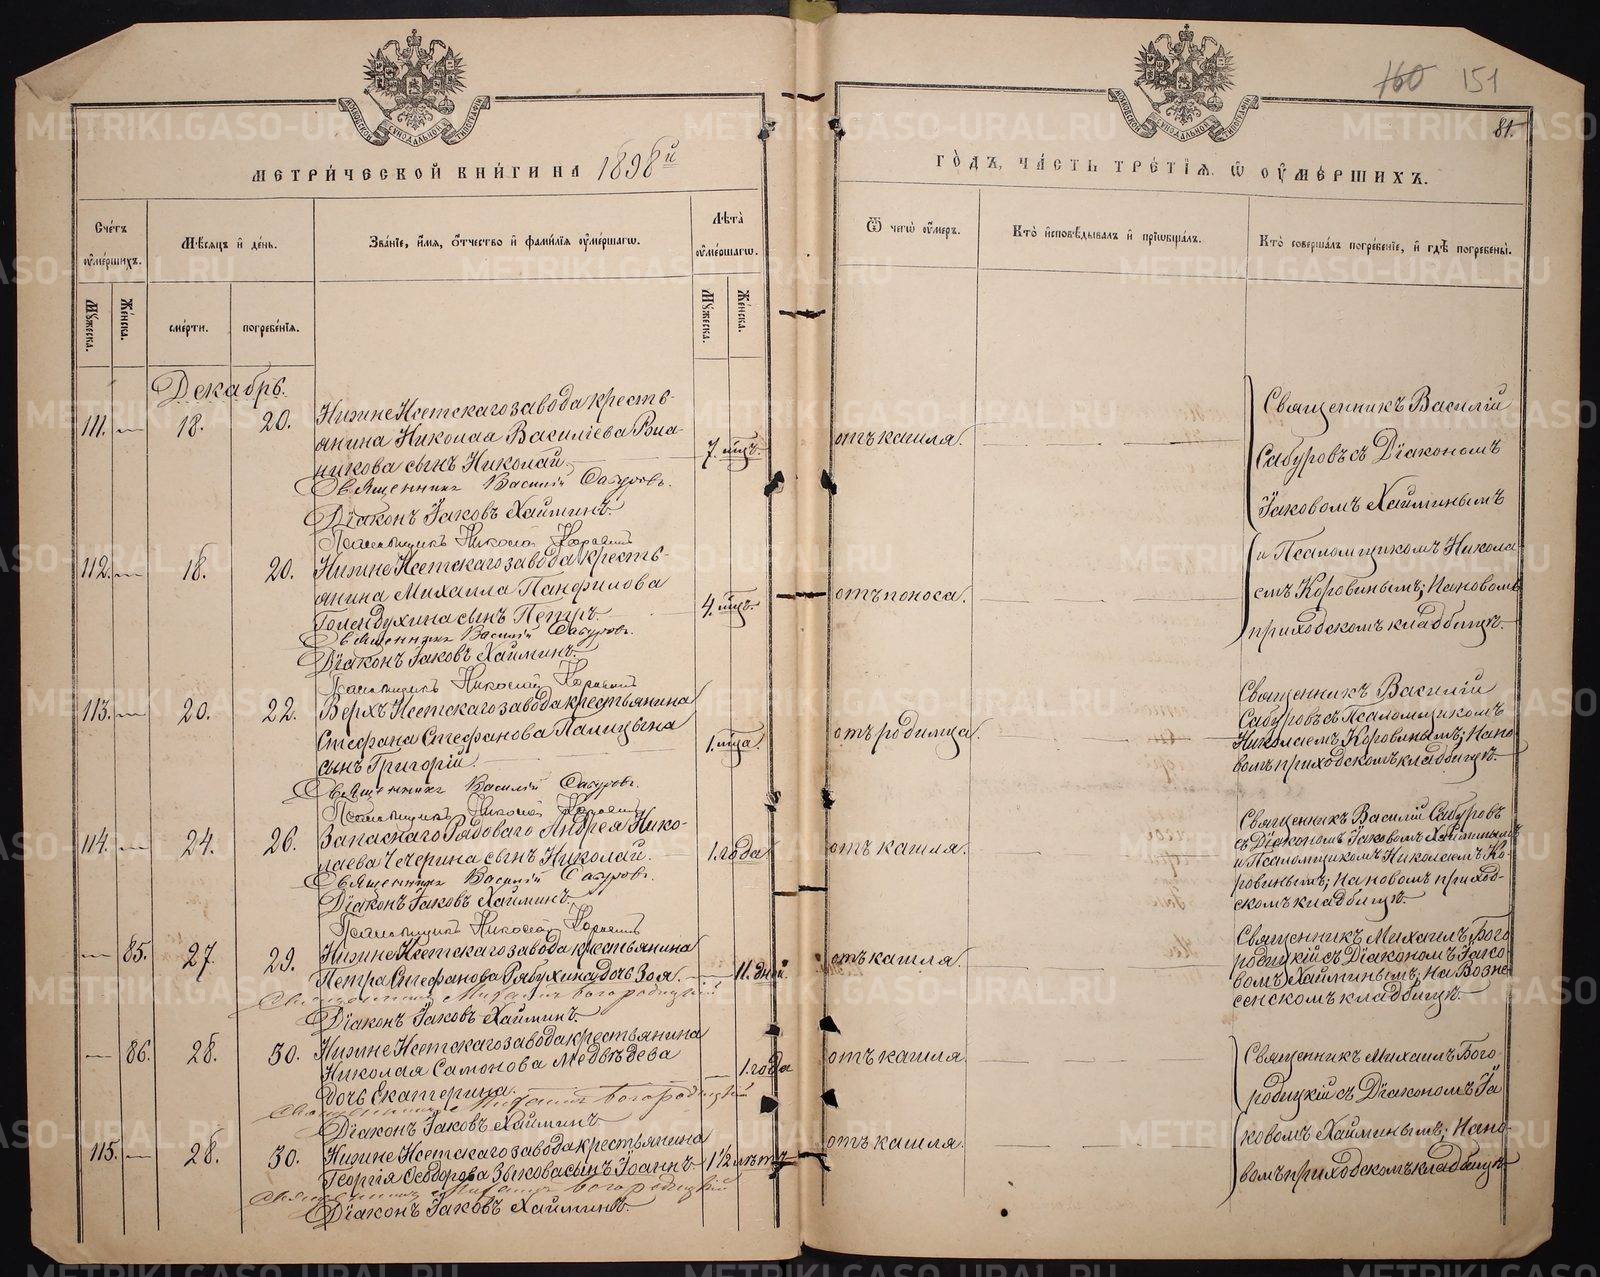 160 151
81.
МЕТРИЧЕСКОЙ КНИГИ НА 1898й
ГОДЪ, ЧАСТЬ ТРЕТІЯ, Ѿ ОУМЕРШИХЪ.
Счетъ оумершихъ.
Мѣсяцъ и день.
Званіе, имя, отчество и фамилія оумершагѡ.
Лѣта оумершагѡ.
Ѿ чегѡ оумеръ.
Кто исповѣдывалъ и пріѡбщалъ.
Кто совершалъ погребеніе, и гдѣ погребены.
Мужеска.
Женска.
смерти.
погребенія.
Мужеска.
Женска.
Декабрь.
111. — 18. 20.
Нижне Исетскаго завода кресть-
янина Николая Василіева
никова сынъ Николай
7. мцъ.
отъ кашля.
Священникъ Василій Сабуровъ.
Діаконъ Іаковъ Хайминъ.
Псаломщикъ Николай Коровинъ
Священникъ Василій
Сабуровъ съ Діакономъ
Іаковомъ Хайминымъ
и Псаломщикомъ Никола-
емъ Коровинымъ; На новомъ
приходскомъ кладбищѣ.
112. — 18. 20.
Нижне Исетскаго завода кресть-
янина Михаила Панфилова
Голендухина сынъ Петръ.
4. мцъ.
отъ поноса.
Священникъ Василій Сабуровъ.
Діаконъ Іаковъ Хайминъ.
Псаломщикъ Николай Коровинъ
113. — 20. 22.
Верхъ Исетскаго завода крестьянина
Стефана Стефанова Палицына
сынъ Григорій.
1. мца.
отъ родимца.
Священникъ Василій Сабуровъ.
Псаломщикъ Николай Коровинъ
Священникъ Василій
Сабуровъ съ Псаломщикомъ
Николаемъ Коровинымъ; На но-
вомъ приходскомъ кладбищѣ.
114. — 24. 26.
Запаснаго Рядоваго Андрея Нико-
лаева Чечерина сынъ Николай.
1. года
отъ кашля.
Священникъ Василій Сабуровъ.
Діаконъ Іаковъ Хайминъ.
Псаломщикъ Николай Коровинъ
Священникъ Василій Сабуровъ
съ Діакономъ Іаковомъ Хайминымъ
и Псаломщикомъ Николаемъ Ко-
ровинымъ; На новомъ приход-
скомъ кладбищѣ.
— 85. 27. 29.
Нижне Исетскаго завода крестьянина
Петра Стефанова Рябухина дочь Зоя.
11. дней.
отъ кашля.
Священникъ Михаилъ Богородицкій
Діаконъ Іаковъ Хайминъ.
Священникъ Михаилъ Бого-
родицкій съ Діакономъ Іако-
вомъ Хайминымъ; На Возне-
сенскомъ кладбищѣ.
— 86. 28. 30.
Нижне Исетскаго завода крестьянина
Николая Самонова Медвѣдева
дочь Екатерина.
1. года
отъ кашля.
Священникъ Михаилъ Богородицкій
Діаконъ Іаковъ Хайминъ.
Священникъ Михаилъ Бого-
родицкій съ Діакономъ Іа-
ковомъ Хайминымъ; На но-
вомъ приходскомъ кладбищѣ.
115. — 28. 30.
Нижне Исетскаго завода крестьянина
Георгія Ѳедорова Зыкова сынъ Іоаннъ.
1½ лѣтъ
отъ кашля.
Священникъ Михаилъ Богородицкій
Діаконъ Іаковъ Хайминъ.
METRIKI.GASO-URAL.RU